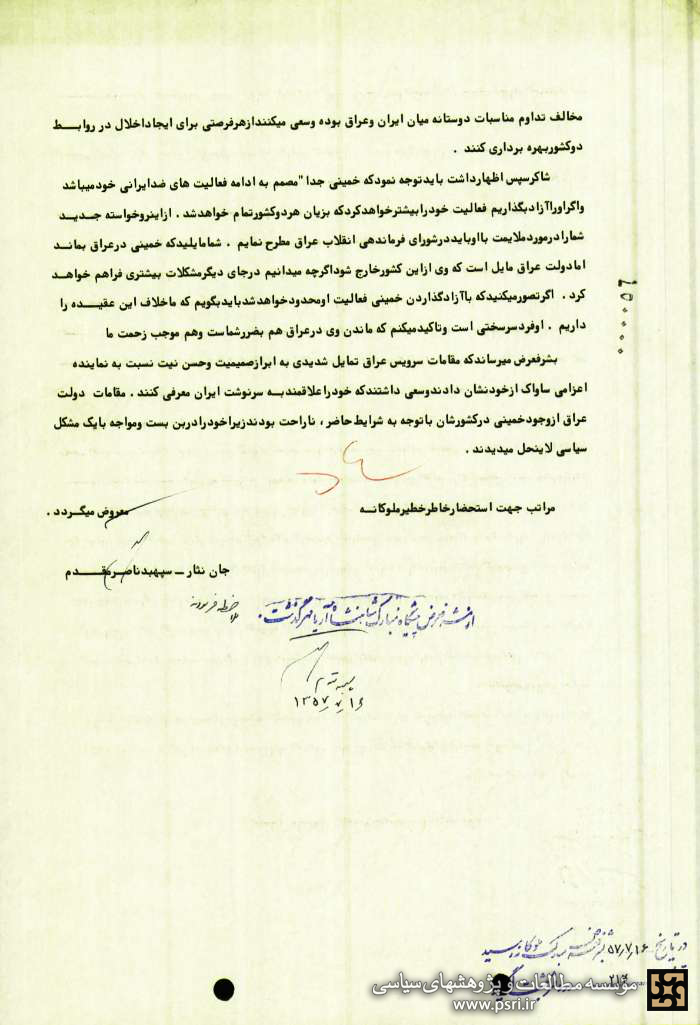 مخالف تداوم مناسبات دوستانه میان ایران وعراق بوده وسعی میکنندازهرفرصتی برای ایجاداخلال در روابط
دوکشوربهره برداری کنند .
شاکرسپس اظهارداشت بایدتوجه نمودکه خمینی جدا" مصمم به ادامه فعالیت های ضدایرانی خودمیباشد
واگراوراآزادبگذاریم فعالیت خودرابیشترخواهدکردکه بزیان هردوکشورتمام خواهدشد . ازاینروخواسته جدید
شمارادرموردملایمت بااوبایددرشورای فرماندهی انقلاب عراق مطرح نمایم . شمامایلیدکه خمینی درعراق بماند
امادولت عراق مایل است که وی ازاین کشورخارج شوداگرچه میدانیم درجای دیگرمشکلات بیشتری فراهم خواهد
کرد . اگرتصورمیکنیدکه باآزادگذاردن خمینی فعالیت اومحدودخواهدشدبایدبگویم که ماخلاف این عقیده را
داریم . اوفردسرسختی است وتاکیدمیکنم که ماندن وی درعراق هم بضررشماست وهم موجب زحمت ما
بشرفعرض میرساندکه مقامات سرویس عراق تمایل شدیدی به ابرازصمیمیت وحسن نیت نسبت به نماینده
اعزامی ساواک ازخودنشان دادندوسعی داشتندکه خودراعلاقمندبه سرنوشت ایران معرفی کنند . مقامات دولت
عراق ازوجودخمینی درکشورشان باتوجه به شرایط حاضر، ناراحت بودندزیراخودرادربن بست ومواجه بایک مشکل
سیاسی لاینحل میدیدند .
مراتب جهت استحضارخاطرخطیرملوکانه معروض میگردد .
جان نثار ــ سپهبدناصرمقدم
از شرفعرض پیشگاه مبارک شاهنشاه آریامهر گذشت .
ملاحظه فرمودند
سپهبد مقدم
۱۳۵۷/۷/۱۶
در تاریخ ۵۷/۷/۱۶ بشرفعرض مبارک ملوکانه رسید
۲۱۶
۰۰۰۰۵۶
مؤسسه مطالعات و پژوهشهای سیاسی
www.psri.ir